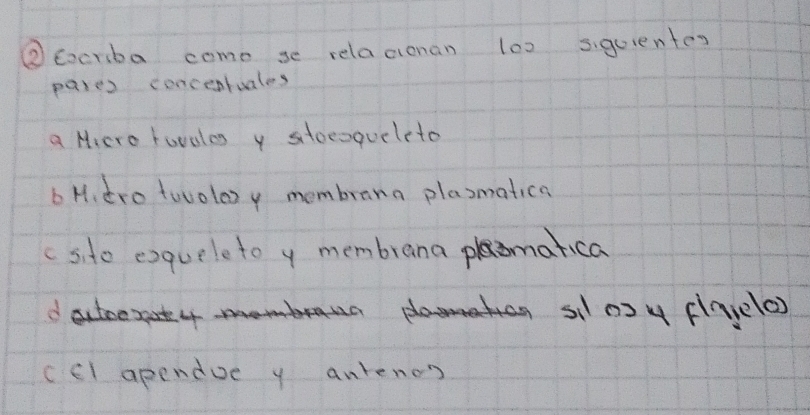 ② Escriba como se relacionan los siguientes
pares conceptuales
a Micro tuvulos y sitoesqueleto
b Micro tuvolos y membrana plasmatica
c sito esqueleto y membrana plasmatica
d silos y flajelos
c El apendoe y antenos